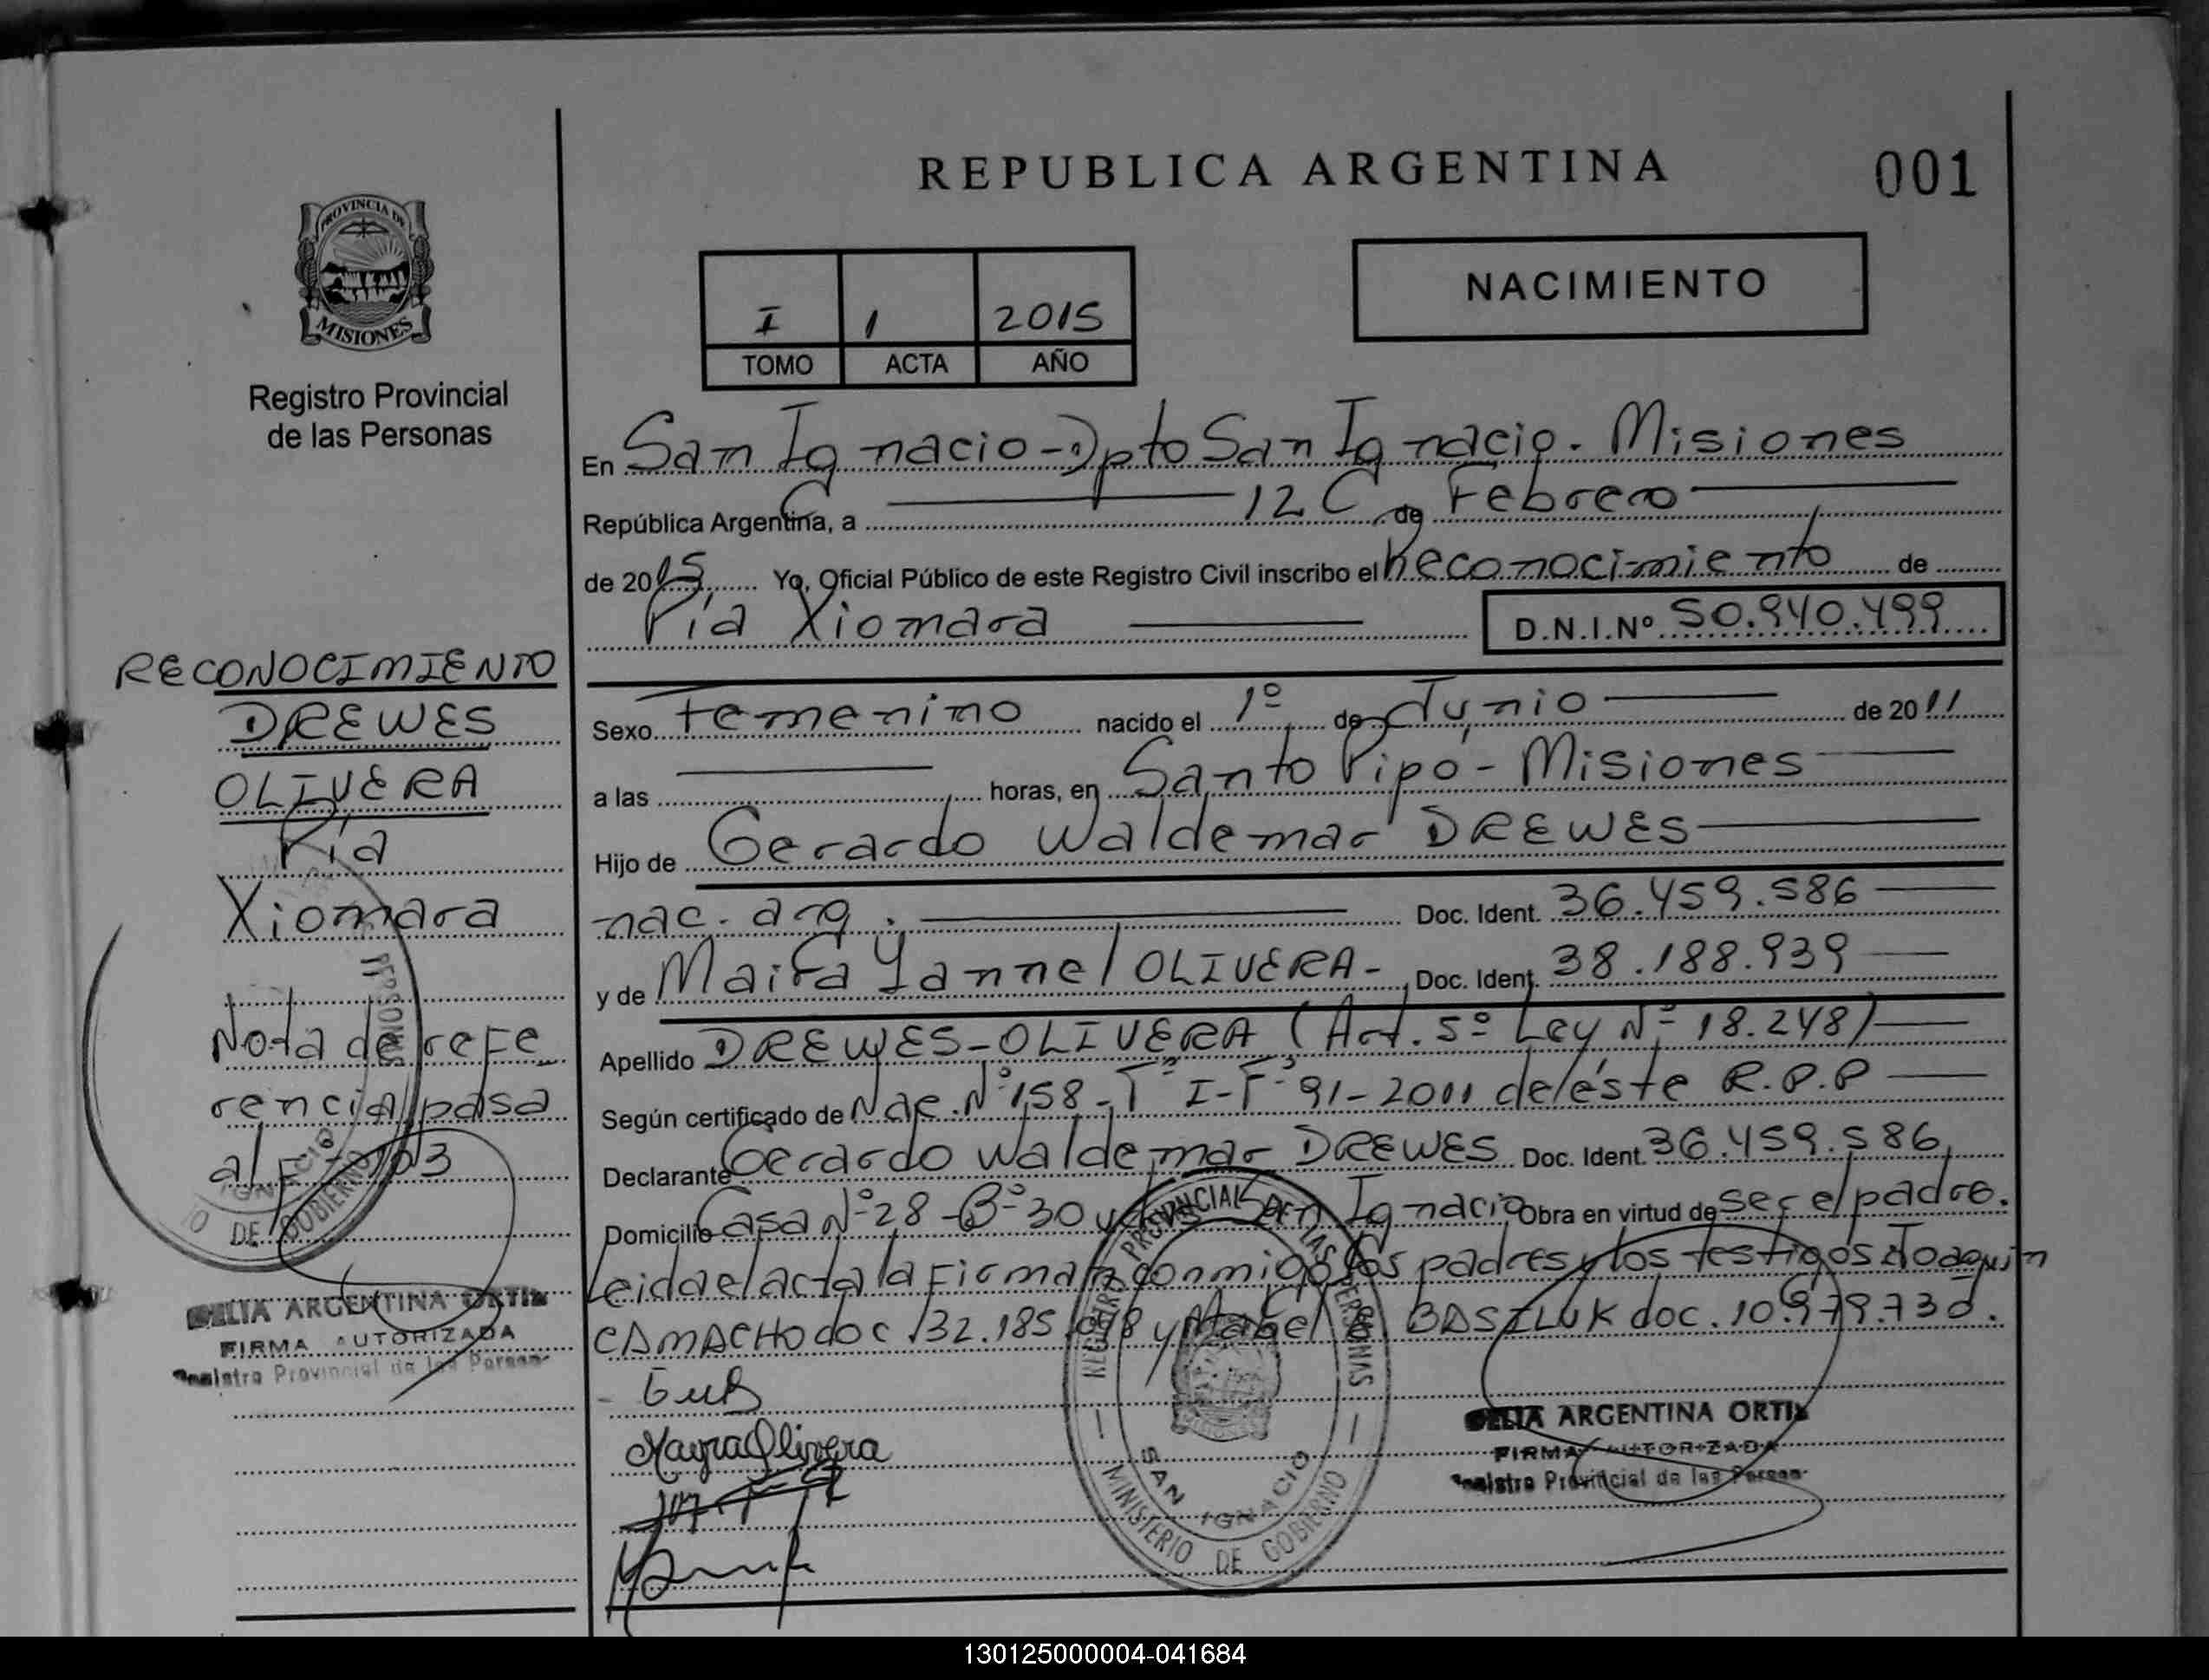 REPUBLICA ARGENTINA
001
PROVINCIA DE
MISIONES
Registro Provincial
de las Personas
NACIMIENTO
I 1 2015
TOMO ACTA AÑO
En San Ignacio-Dpto San Ignacio. Misiones
República Argentina, a 12 de Febrero
de 2015 Yo, Oficial Público de este Registro Civil inscribo el Reconocimiento de
Pía Xiomara D.N.I.Nº 50.940.499
Sexo Femenino nacido el 1º de Junio de 2011
a las horas, en Santo Pipó - Misiones
Hijo de Gerardo Waldemar DREWES
nac. arg. Doc. Ident. 36.459.586
y de Maira Yannel OLIVERA- Doc. Ident. 38.188.939
Apellido DREWES-OLIVERA (Art. 5º Ley Nº 18.248)
Según certificado de Nac. Nº 158-Tº I-Fº 91-2011 de éste R.P.P
Declarante Gerardo Waldemar DREWES Doc. Ident. 36.459.586
Domicilio Casa Nº 28-Bº 30 San Ignacio Obra en virtud de ser el padre.
Leida el acta la Firman conmigo los padres y los testigos Joaquín
CAMACHO doc 32.185 y Mabel BASILUK doc.
Mayra Olivera
RECONOCIMIENTO
DREWES
OLIVERA
Pía
Xiomara
Nota de refe
rencia pasa
al Fº 103
ARGENTINA ORTIZ
FIRMA AUTORIZADA
Registro Provincial de las Person
REGISTRO PROVINCIAL DE LAS PERSONAS
SAN IGNACIO
MINISTERIO DE GOBIERNO
ARGENTINA ORTIZ
FIRMA AUTORIZADA
Registro Provincial de las Person
130125000004-041684